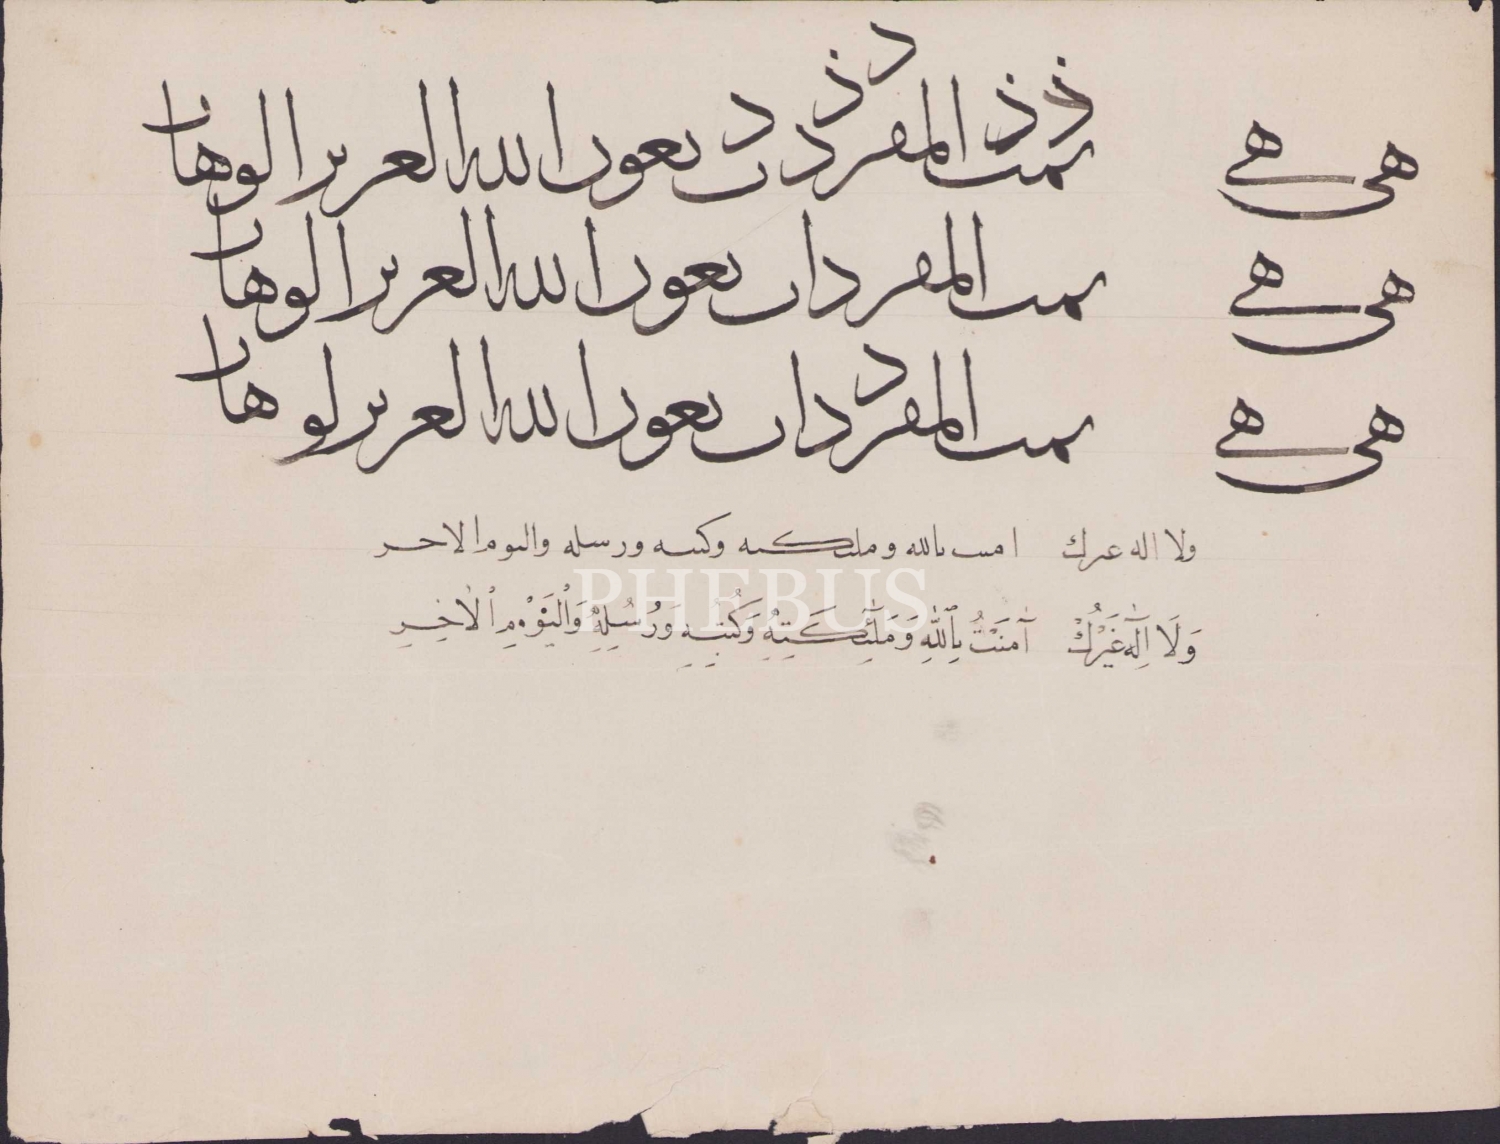 د
ذ ذ ذ
هى هے تمت المفردات بعون الله العزيز الوهاب
هى هے تمت المفردات بعون الله العزيز الوهاب
د
هى هے تمت المفردات بعون الله العزيز الوهاب
ولا اله غيرك امنت بالله وملئكته وكتبه ورسله واليوم الاخر
وَلَا اِلٰهَ غَيْرُكْ آمَنْتُ بِاللّٰهِ وَمَلٰٓئِكَتِهِ وَكُتُبِهِ وَرُسُلِهِ وَالْيَوْمِ الْاٰخِرِ
PHEBUS